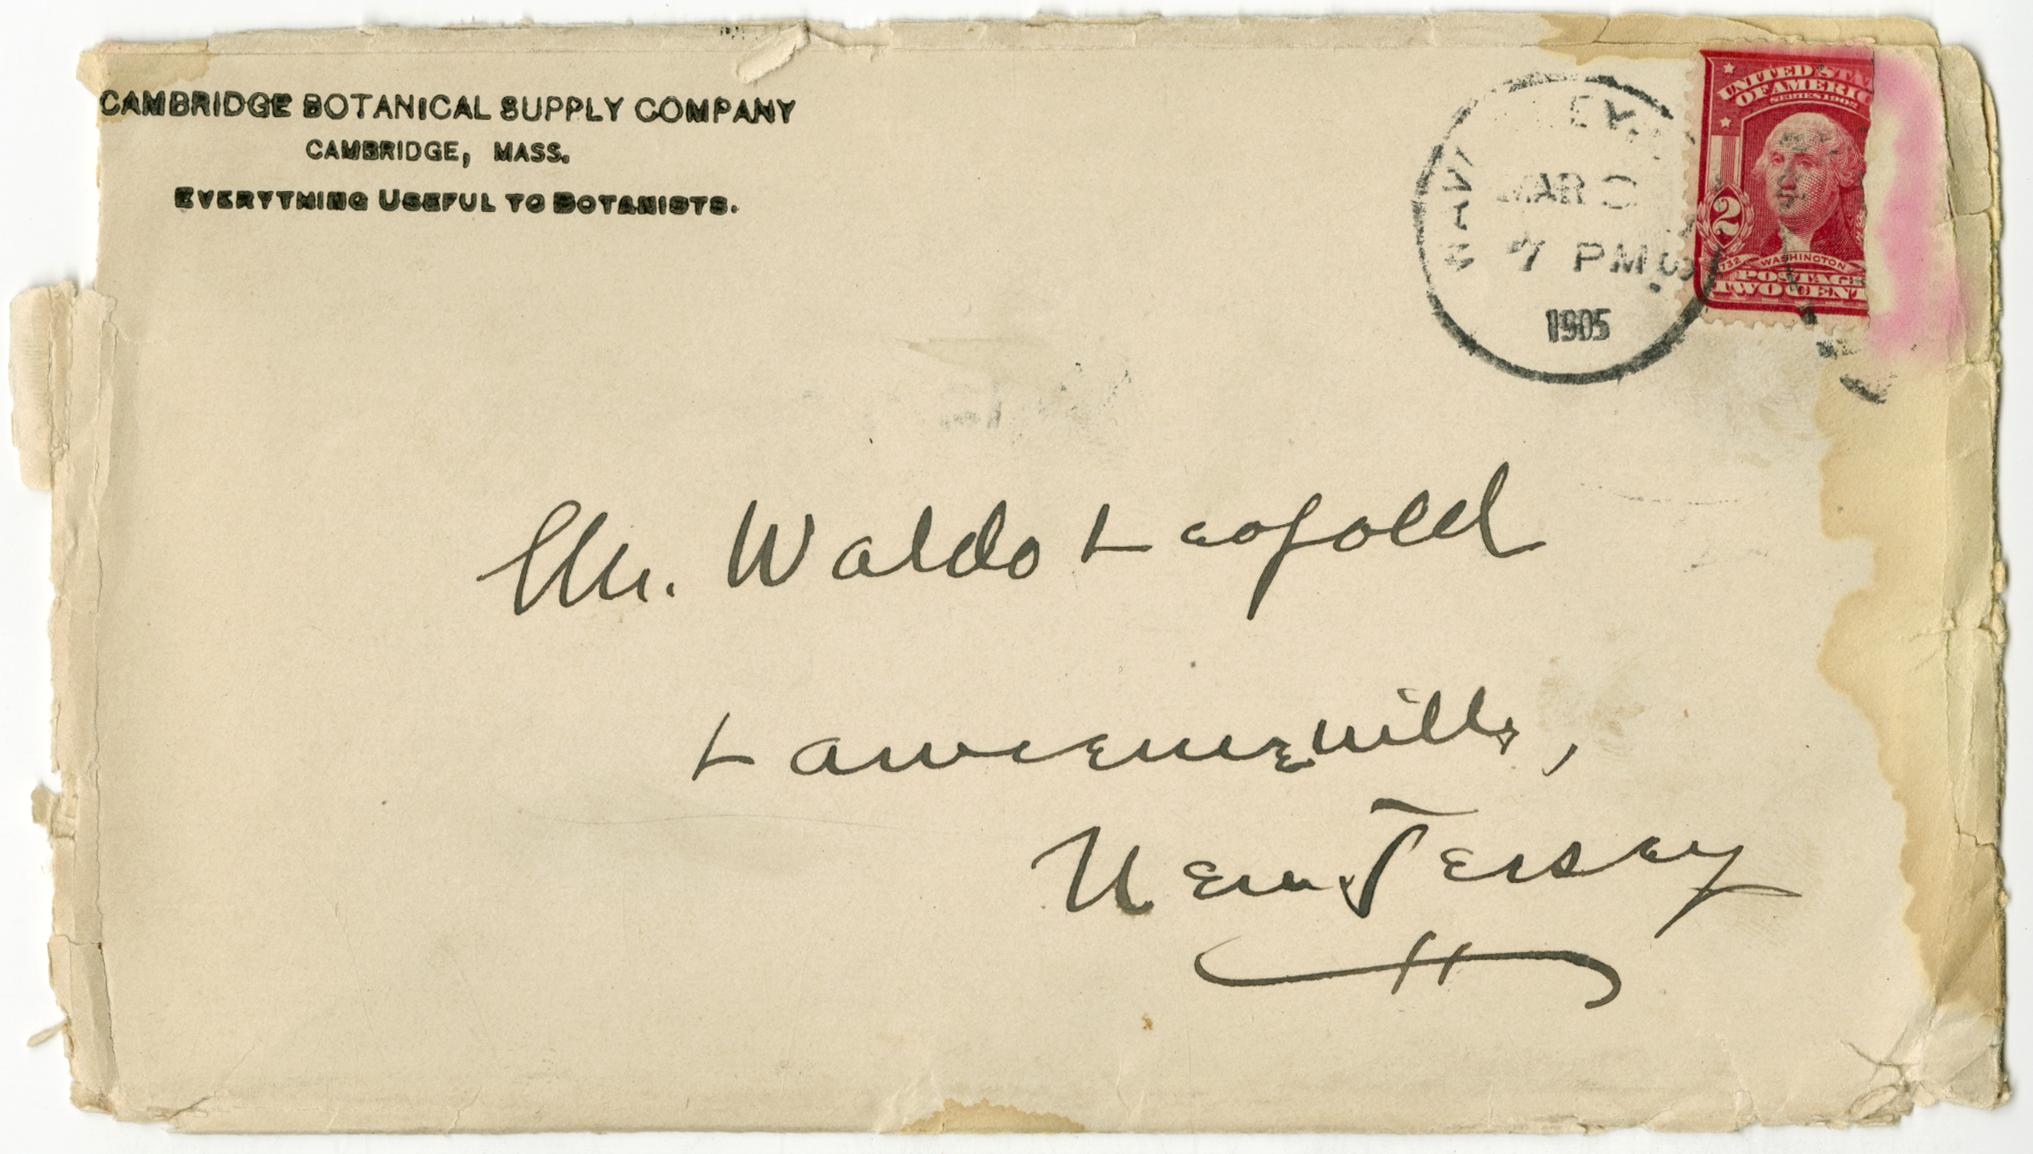 CAMBRIDGE BOTANICAL SUPPLY COMPANY
CAMBRIDGE, MASS.
EVERYTHING USEFUL TO BOTANISTS.
MAR
7 PM
1905
UNITED STA
OF AMERIC
SERIES 1902
2
1732 WASHINGTON
POSTAGE
TWO CENT
Mr. Waldo Leopold
Lawrenceville,
New Jersey